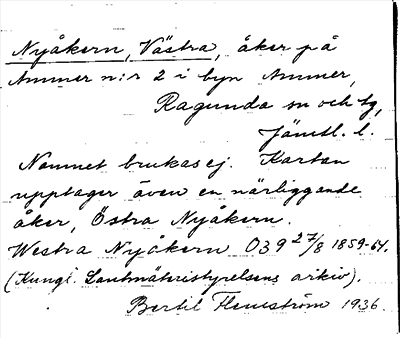 Nyåkern, Västra, åker på
Ammer n:r 2 i byn Ammer,
Ragunda sn och tg,
Jämtl. l.
Namnet brukas ej. Kartan
upptager även en närliggande
åker, Östra Nyåkern.
Westra Nyåkern O39 27/8 1859-64.
(Kungl. Lantmäteristyrelsens arkiv).
Bertil Flemström 1936.